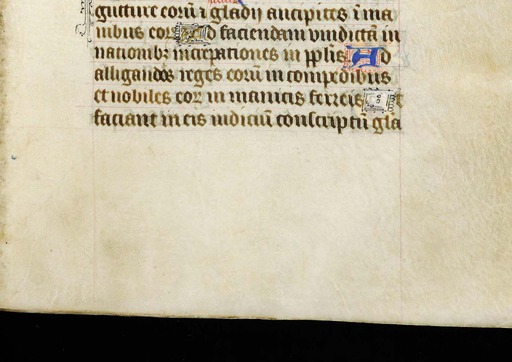 gutture eorū ⁊ gladij ancipites ī ma
nibus eoꝝ Ad faciendam vindictā in
nationibꝫ increpationes in pplīs Ad
alligandos reges eorū in compedibus
et nobiles eoꝝ in manicis ferreis Ut
faciant in eis iudiciū conscriptū gla